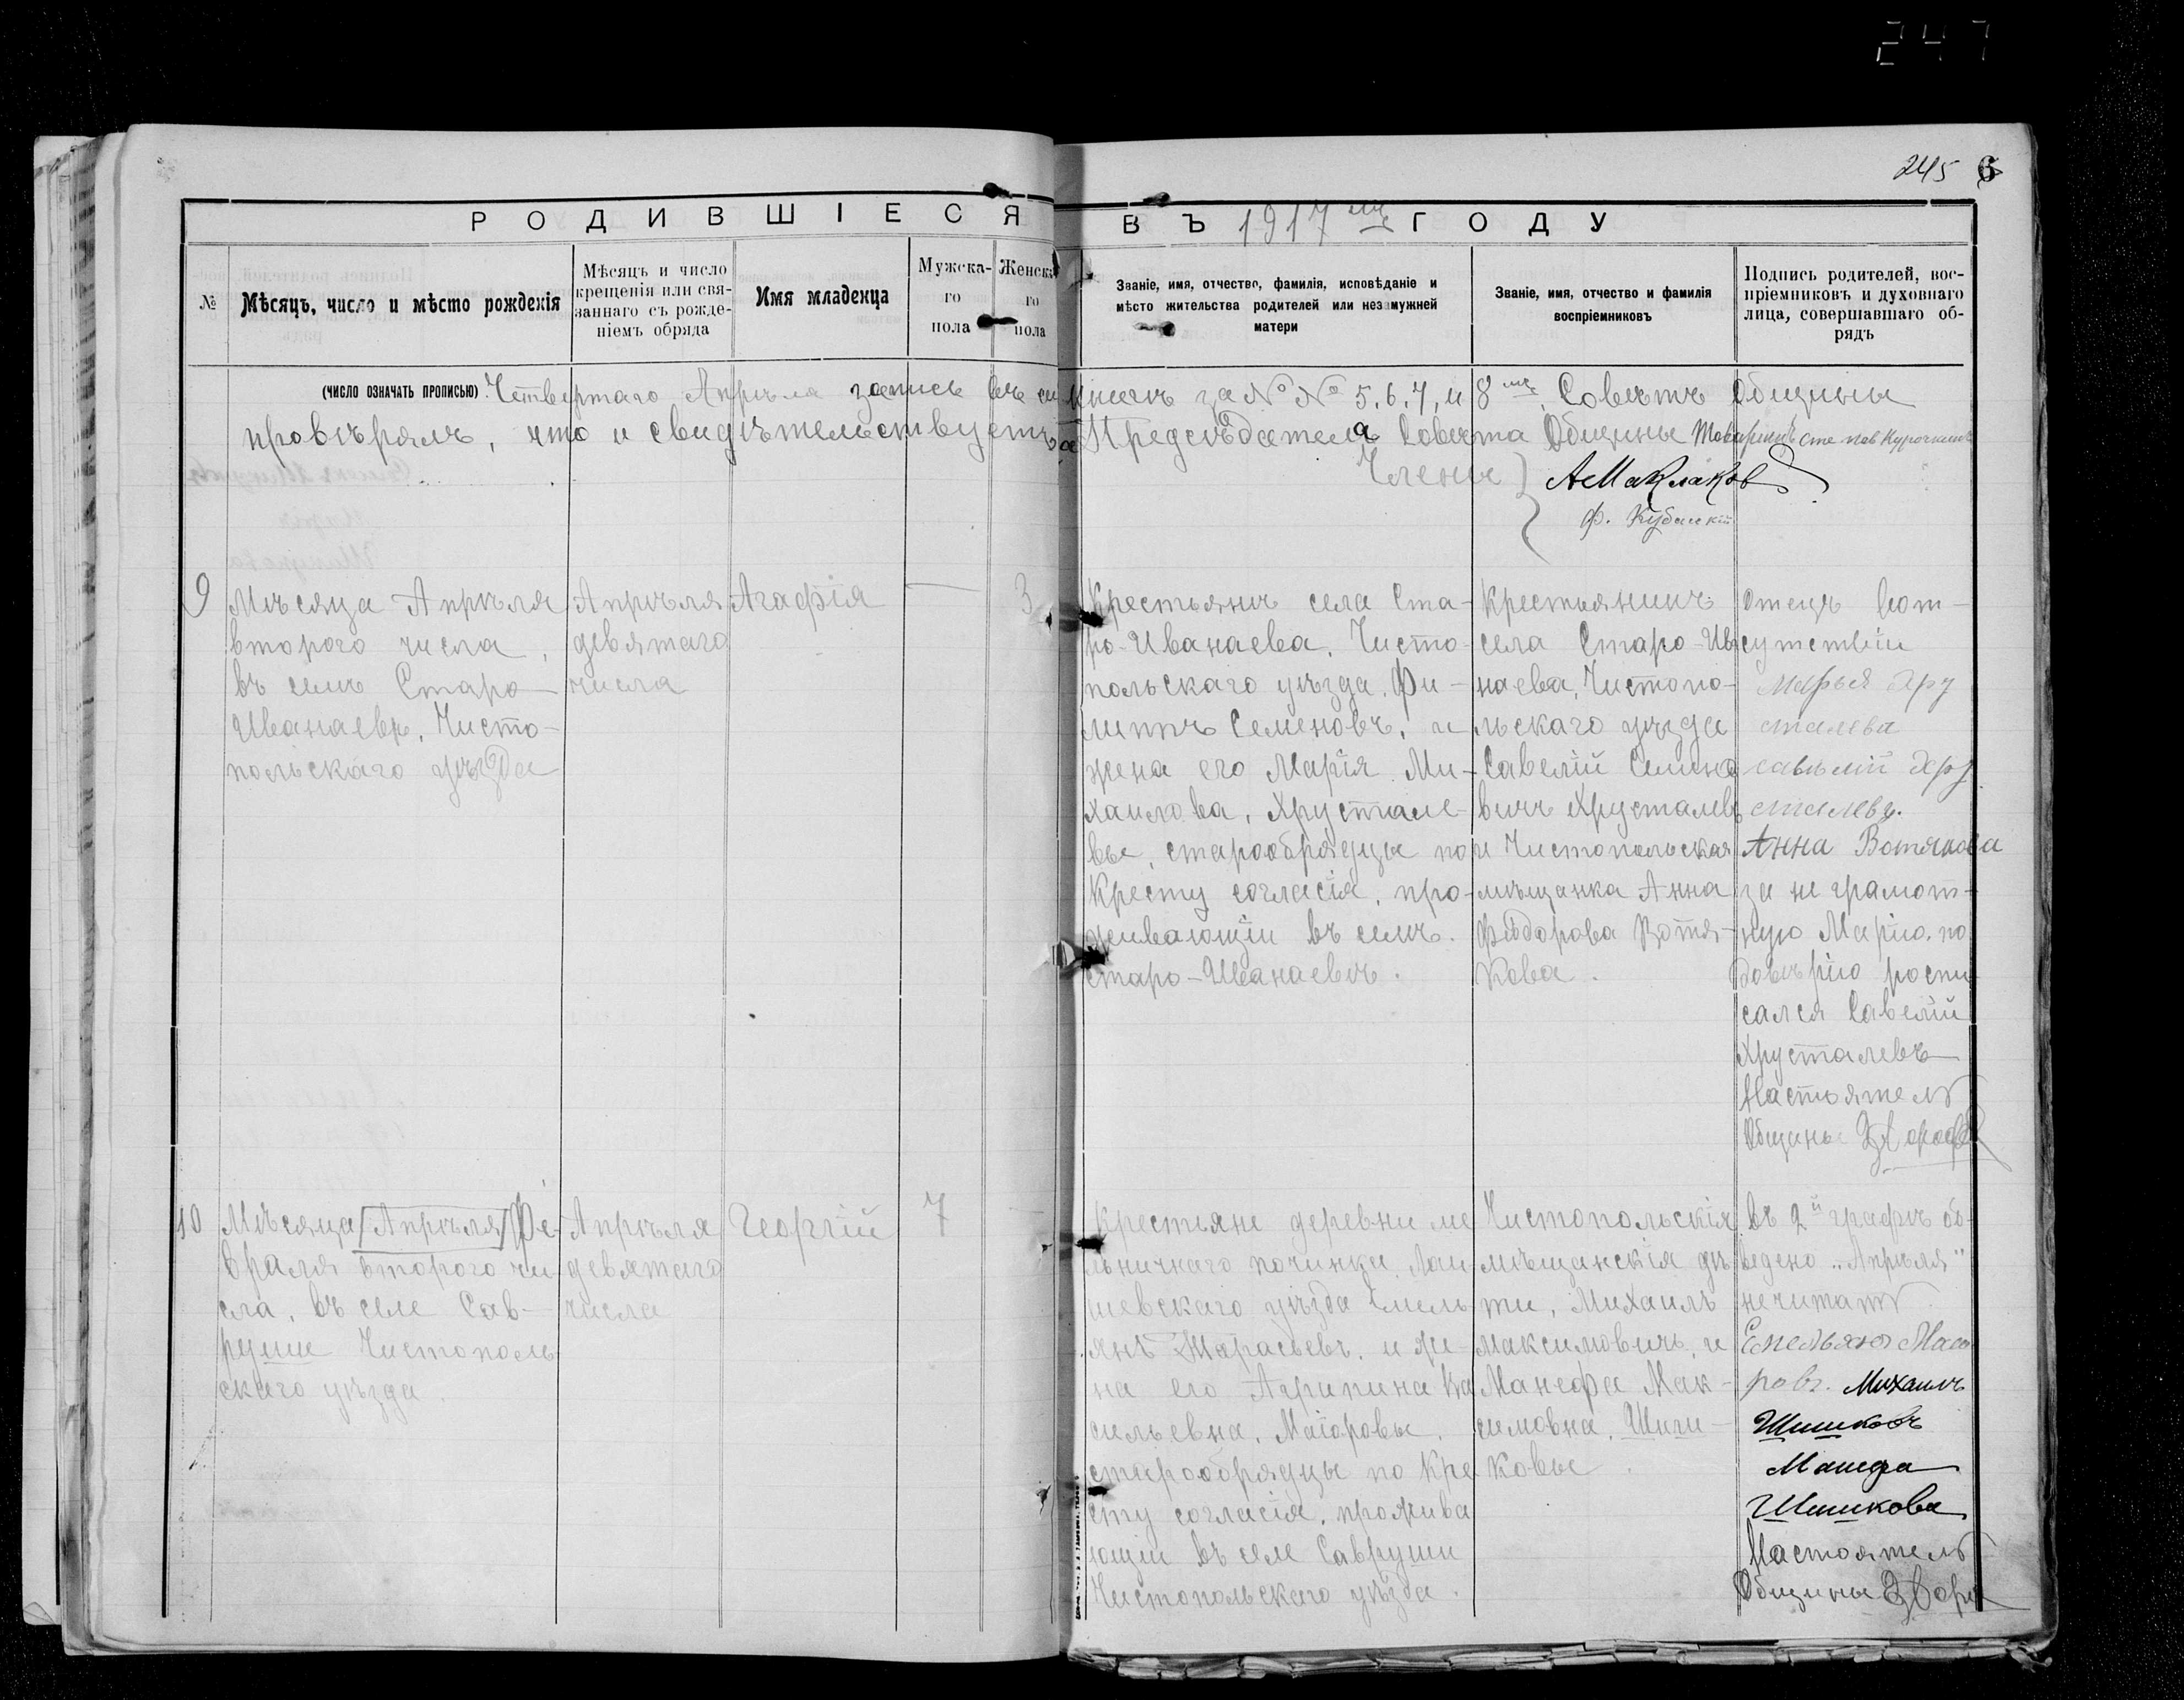 247
245 6
РОДИВШІЕСЯ ВЪ 1917 мъ ГОДУ
№
Мѣсяцъ, число и мѣсто рожденія
Мѣсяцъ и число
крещенія или свя-
заннаго съ рожде-
ніемъ обряда
Имя младенца
Мужска-
го
пола
Женска
го
пола
Званіе, имя, отчество, фамилія, исповѣданіе и
мѣсто жительства родителей или незамужней
матери
Званіе, имя, отчество и фамилія
воспріемниковъ
Подпись родителей, вос-
пріемниковъ и духовнаго
лица, совершавшаго об-
рядъ
(ЧИСЛО ОЗНАЧАТЬ ПРОПИСЬЮ) Четвертаго Апрѣля запись въ сихъ книгахъ за №№ 5, 6, 7, и 8 мъ. Совѣтъ Общины
провѣрялъ, что и свидѣтельствуетъ Предсѣдателя Совѣта Общины Товарищъ
Члены АМаклаковъ
Ф. Кубацкій
9
Мѣсяца Апрѣля
второго числа,
въ селѣ Старо-
Иванаевѣ, Чисто-
польскаго уѣзда
Апрѣля
девятаго
числа
Агафія
—
3
Крестьянъ села Ста-
ро-Иванаева, Чисто-
польскаго уѣзда, Фи-
липпъ Семеновъ, и
жена его Марія Ми-
хаилова, Хрустале-
вы, старообрядцы по
Кресту согласія, про-
живающіи въ селѣ
старо-Иванаевѣ.
Крестьянинъ
села Старо-Ива
наева, Чистопо-
льскаго уѣзда
Савелій Семено
вичъ Хрусталевъ
и Чистопольская
мѣщанка Анна
Феодорова Вотя-
кова.
Отецъ вот-
сутствіи
Марья Хру
сталева
савелій Хру
сталевъ.
Анна Вотякова
за не грамот-
ную Марію, по
довѣрію роспи
сался Савелій
Хрусталевъ
Настоятель
Общины
10
Мѣсяца [Апрѣля] Фе-
враля второго чи-
сла, въ селе Сав-
руше Чистополь
скаго уѣзда.
Апрѣля
девятаго
числа
Георгій
7
Крестьяне деревни ме
льничнаго починка, Лаи-
шевскаго уѣзда Емель
янъ Тарасьевъ, и же-
на его Агрипина Ва
сильевна, Маіоровы,
старообрядцы по Кре
сту согласія, прожива
ющіи въ селе Савруши
Чистопольскаго уѣзда.
Чистопольскія
мѣщанскія дѣ
ти, Михаилъ
Максимовичъ, и
Манефа Мак-
симовна, Шиши-
ковы.
въ 2й графѣ об-
ведено "Апрѣля"
нечитать
Емельянъ Маіо
ровъ. Михаилъ
Шишковъ
Манефа
Шишкова
Настоятель
Общины